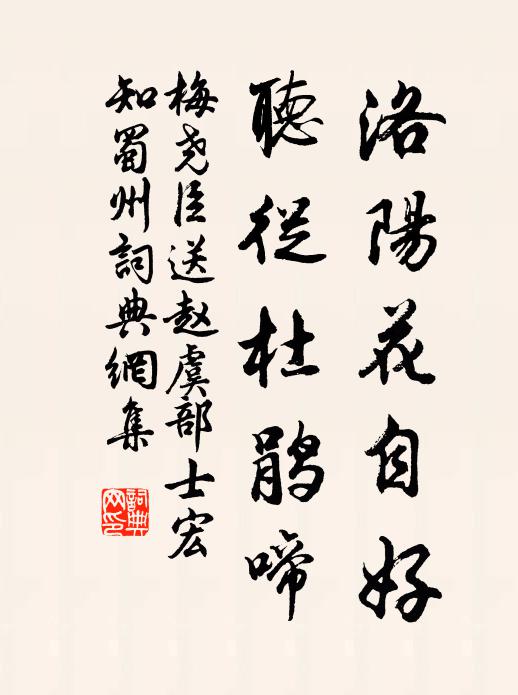 洛陽花自好
聽從杜鵑啼
梅尧臣送赵虞部士宏
知蜀州詞典網集
詞典网印